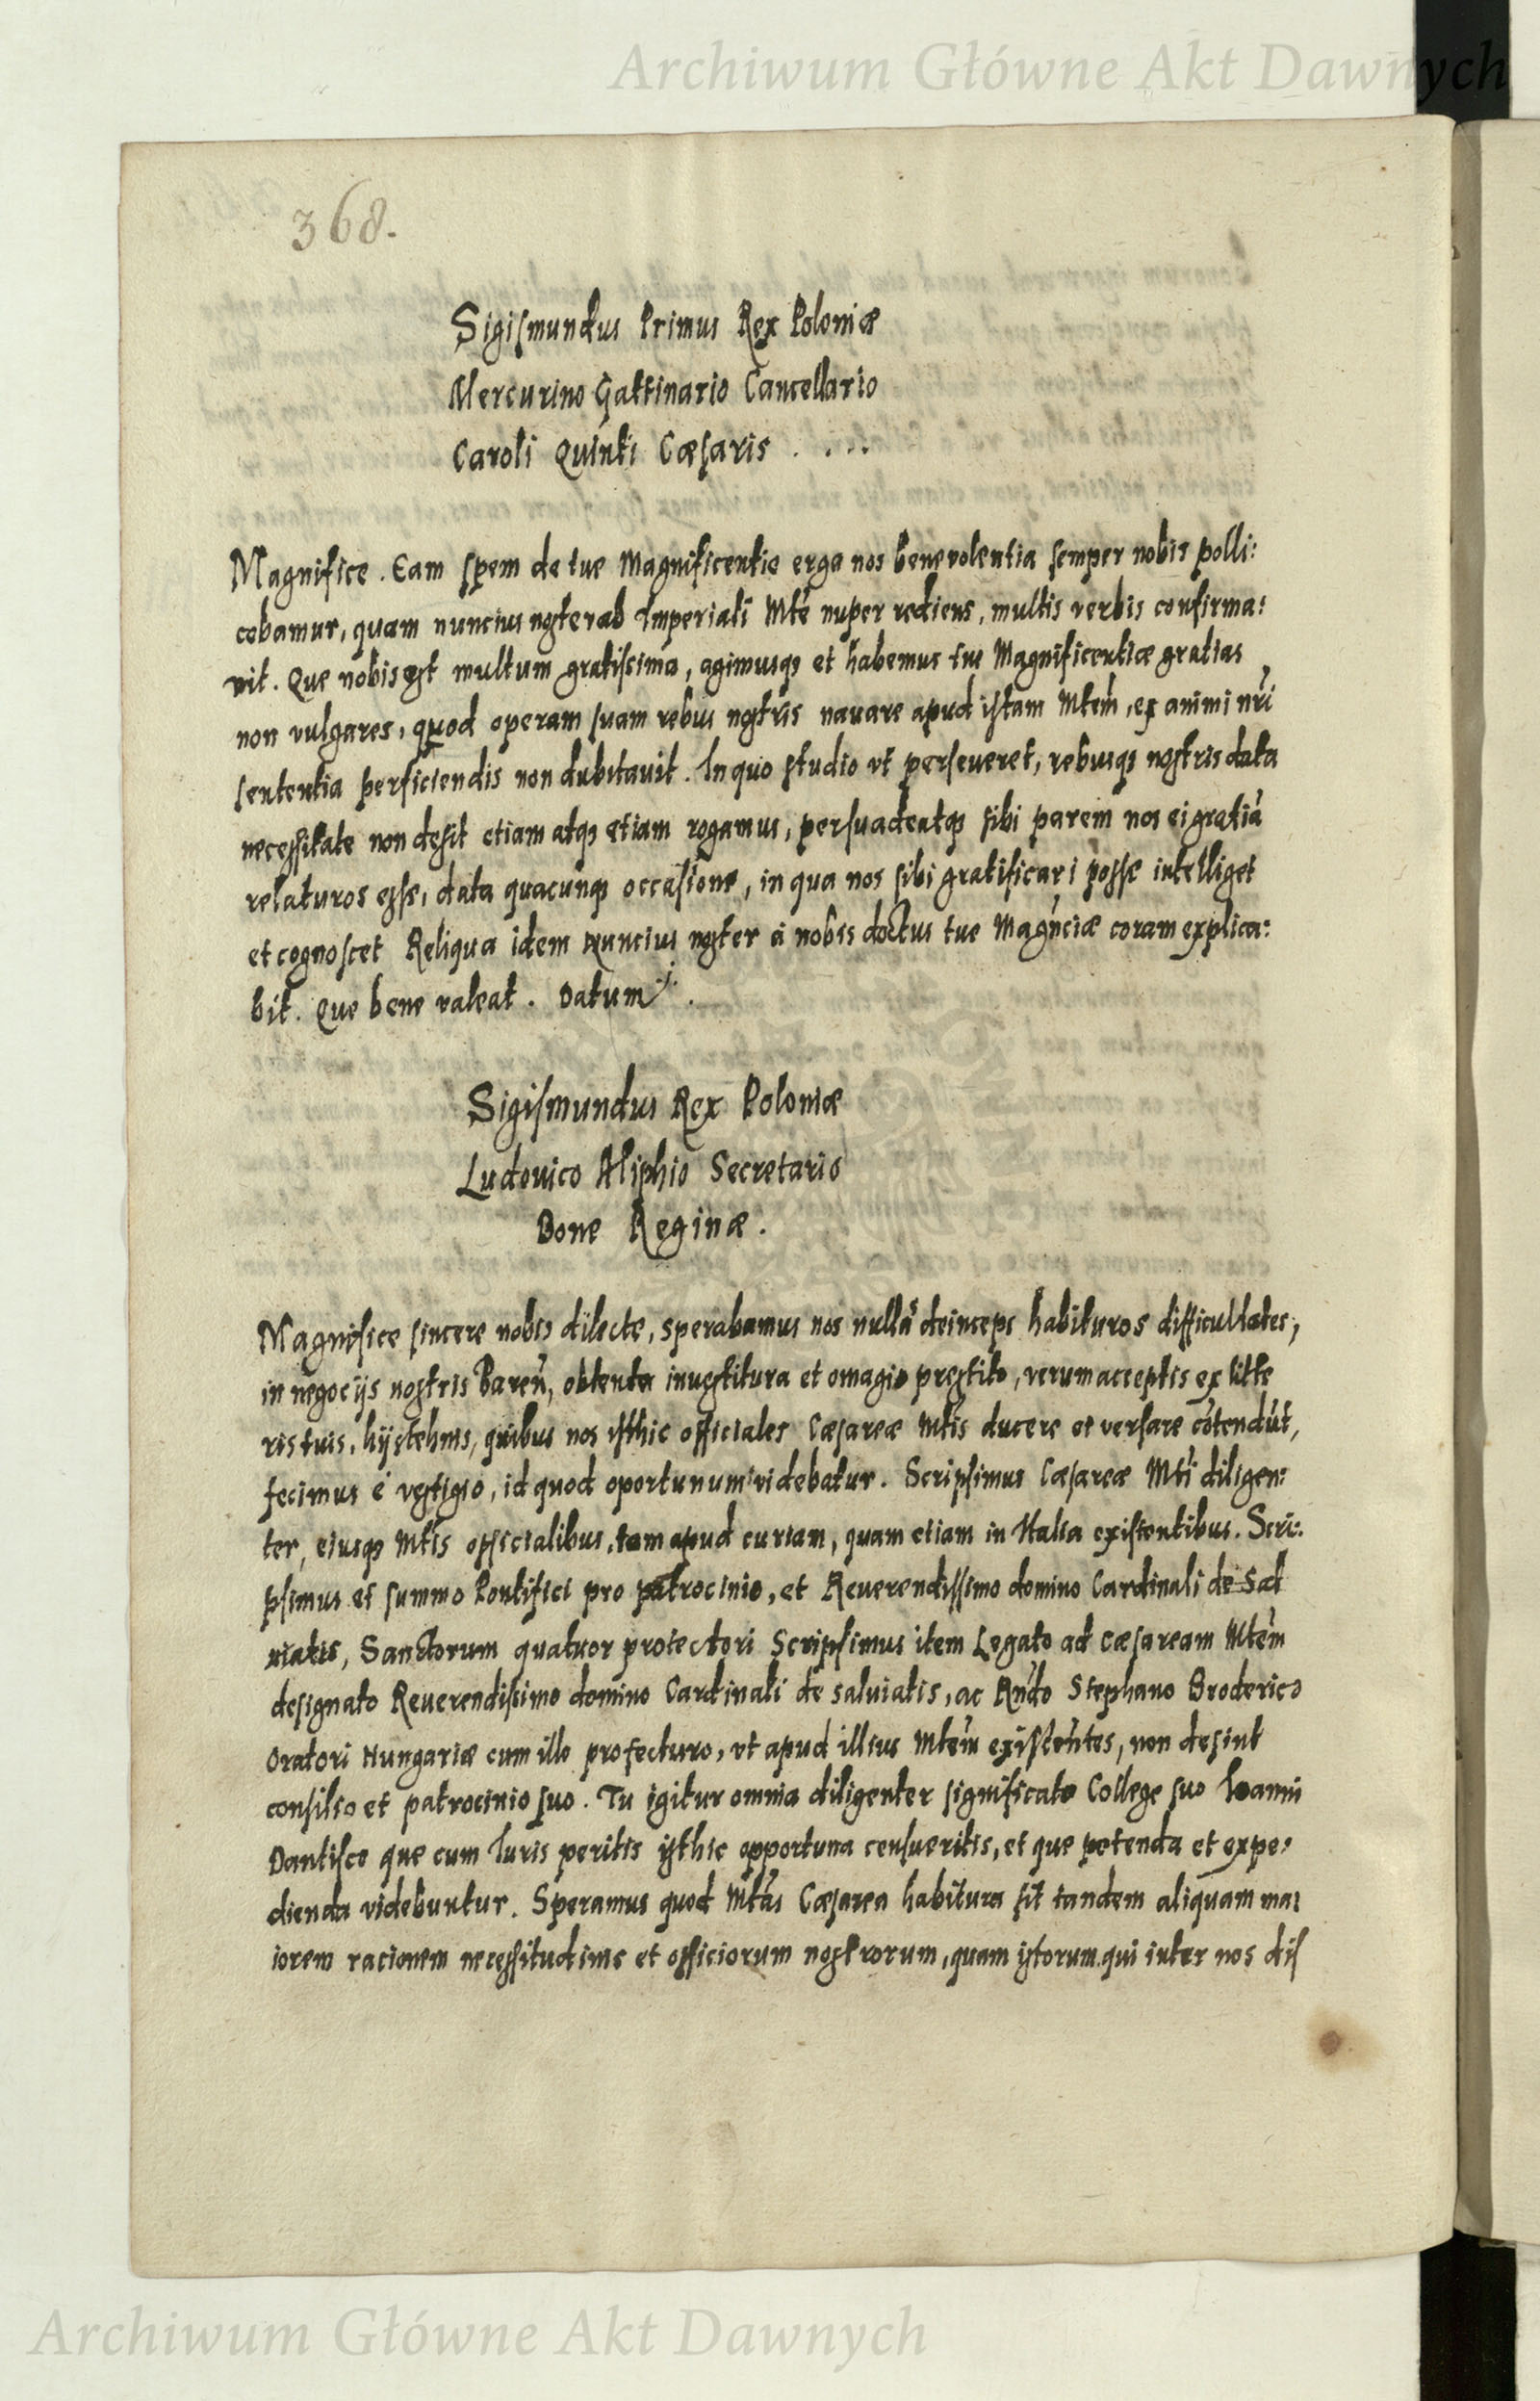 Archiwum Główne Akt Dawnych
368.
Sigismundus Primus Rex Poloniæ
Mercurino Gattinario Cancellario
Caroli Quinti Cæsaris . . . .
Magnifice . Eam spem de tue Magnificentie erga nos benevolentia semper nobis polli:
cebamur, quam nuncius noster ab Imperiali Mte nuper rediens, multis verbis confirma:
vit. Que nobis est multum gratissima, agimusq et habemus tue Magnificentiæ gratias
non vulgares, quod operam suam rebus nostris navare apud istam Mtem, ex animi nri
sententia perficiendis non dubitavit. In quo studio vt perseueret, rebusq nostris data
necessitate non desit etiam atq etiam rogamus, persuadeatq sibi parem nos ei gratiã
relaturos esse, data quacunq occasione, in qua nos sibi gratificari posse intelliget
et cognoscet Reliqua idem nuncius noster á nobis doctus tue Magnciæ coram explica:
bit. Que bene valeat. Datum .
Sigismundus Rex Poloniæ
Ludouico Aliphio Secretario
Bone Reginæ.
Magnifice sincere nobis dilecte, sperabamus nos nullas deinceps habituros difficultates,
in negocijs nostris Baren, obtenta inuestitura et omagio prestito, verum acceptis ex litte
ris tuis, hijs tehnis, quibus nos isthic officiales Cæsareæ Mtis ducere et versare cõtendũt,
fecimus é vestigio, id quod oportunum videbatur. Scripsimus Cæsareæ Mti diligen:
ter, eiusq Mtis officialibus, tam apud curiam, quam etiam in Italia existentibus. Scri:
psimus et summo Pontifici pro patrocinio, et Reuerendissimo domino Cardinali de Sal
uiatis, Sanctorum quatuor protectori Scripsimus item Legato ad Cæsaream Mtem
designato Reuerendissimo domino Cardinali de saluiatis, ac Rndo Stephano Broderico
Oratori Hungariæ cum illo profecturo, vt apud illius Mtem existentes, non desint
consilio et patrocinio suo. Tu igitur omnia diligenter significato College suo Ioanni
Dantisco que cum Iuris peritis isthic opportuna censueritis, et que petenda et expe:
dienda videbuntur. Speramus quod Mtas Cæsarea habitura sit tandem aliquam ma:
iorem racionem necessitudinis et officiorum nostrorum, quam istorum qui inter nos dis
Archiwum Główne Akt Dawnych